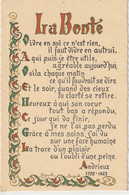 La Bonté
Vivre en soi ce n'est rien,
il faut vivre en autrui.
A qui puis-je être utile,
agréable aujourd'hui
Voilà chaque matin
ce qu'il faudrait se dire
Et le soir, quand des cieux
la clarté se retire
Heureux à qui son cœur
tout bas a répondu,
Ce jour qui va finir,
Je ne l'ai pas perdu
Grâce à mes soins, j'ai vu
sur une face humaine
La trace d'un plaisir
ou l'oubli d'une peine.
Andrieux